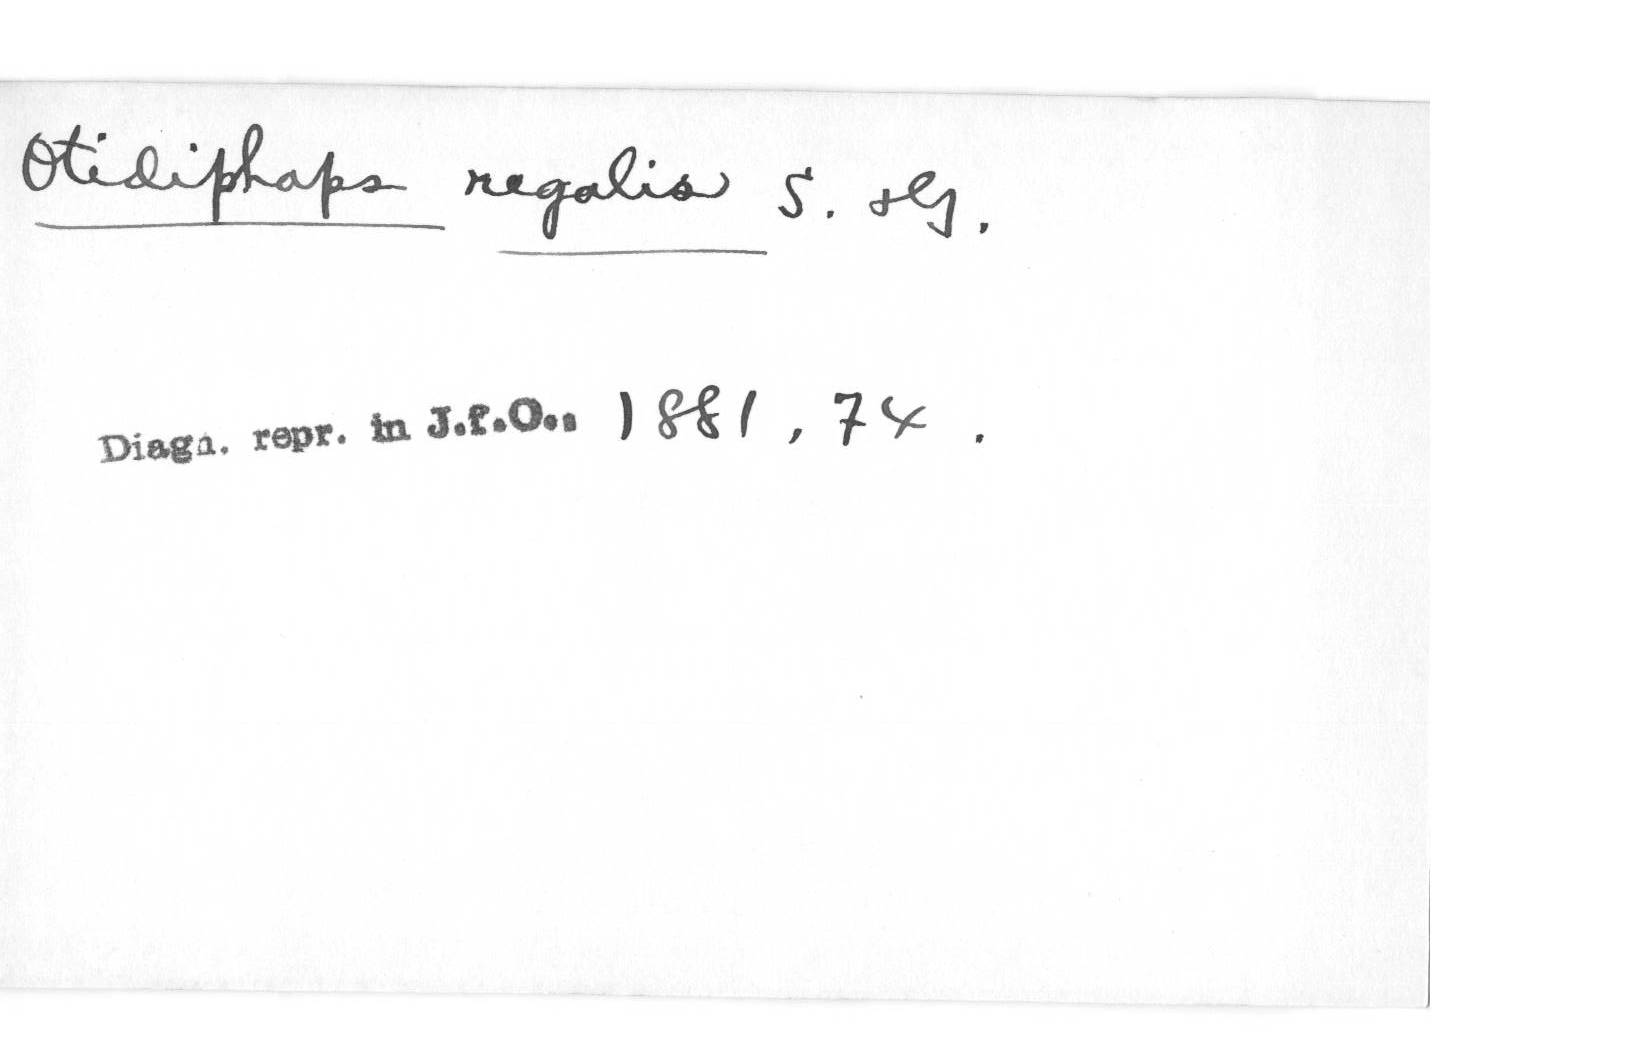 Otidiphaps regalis S. & G.
Diagn. repr. in J.f.O., 1881, 74.